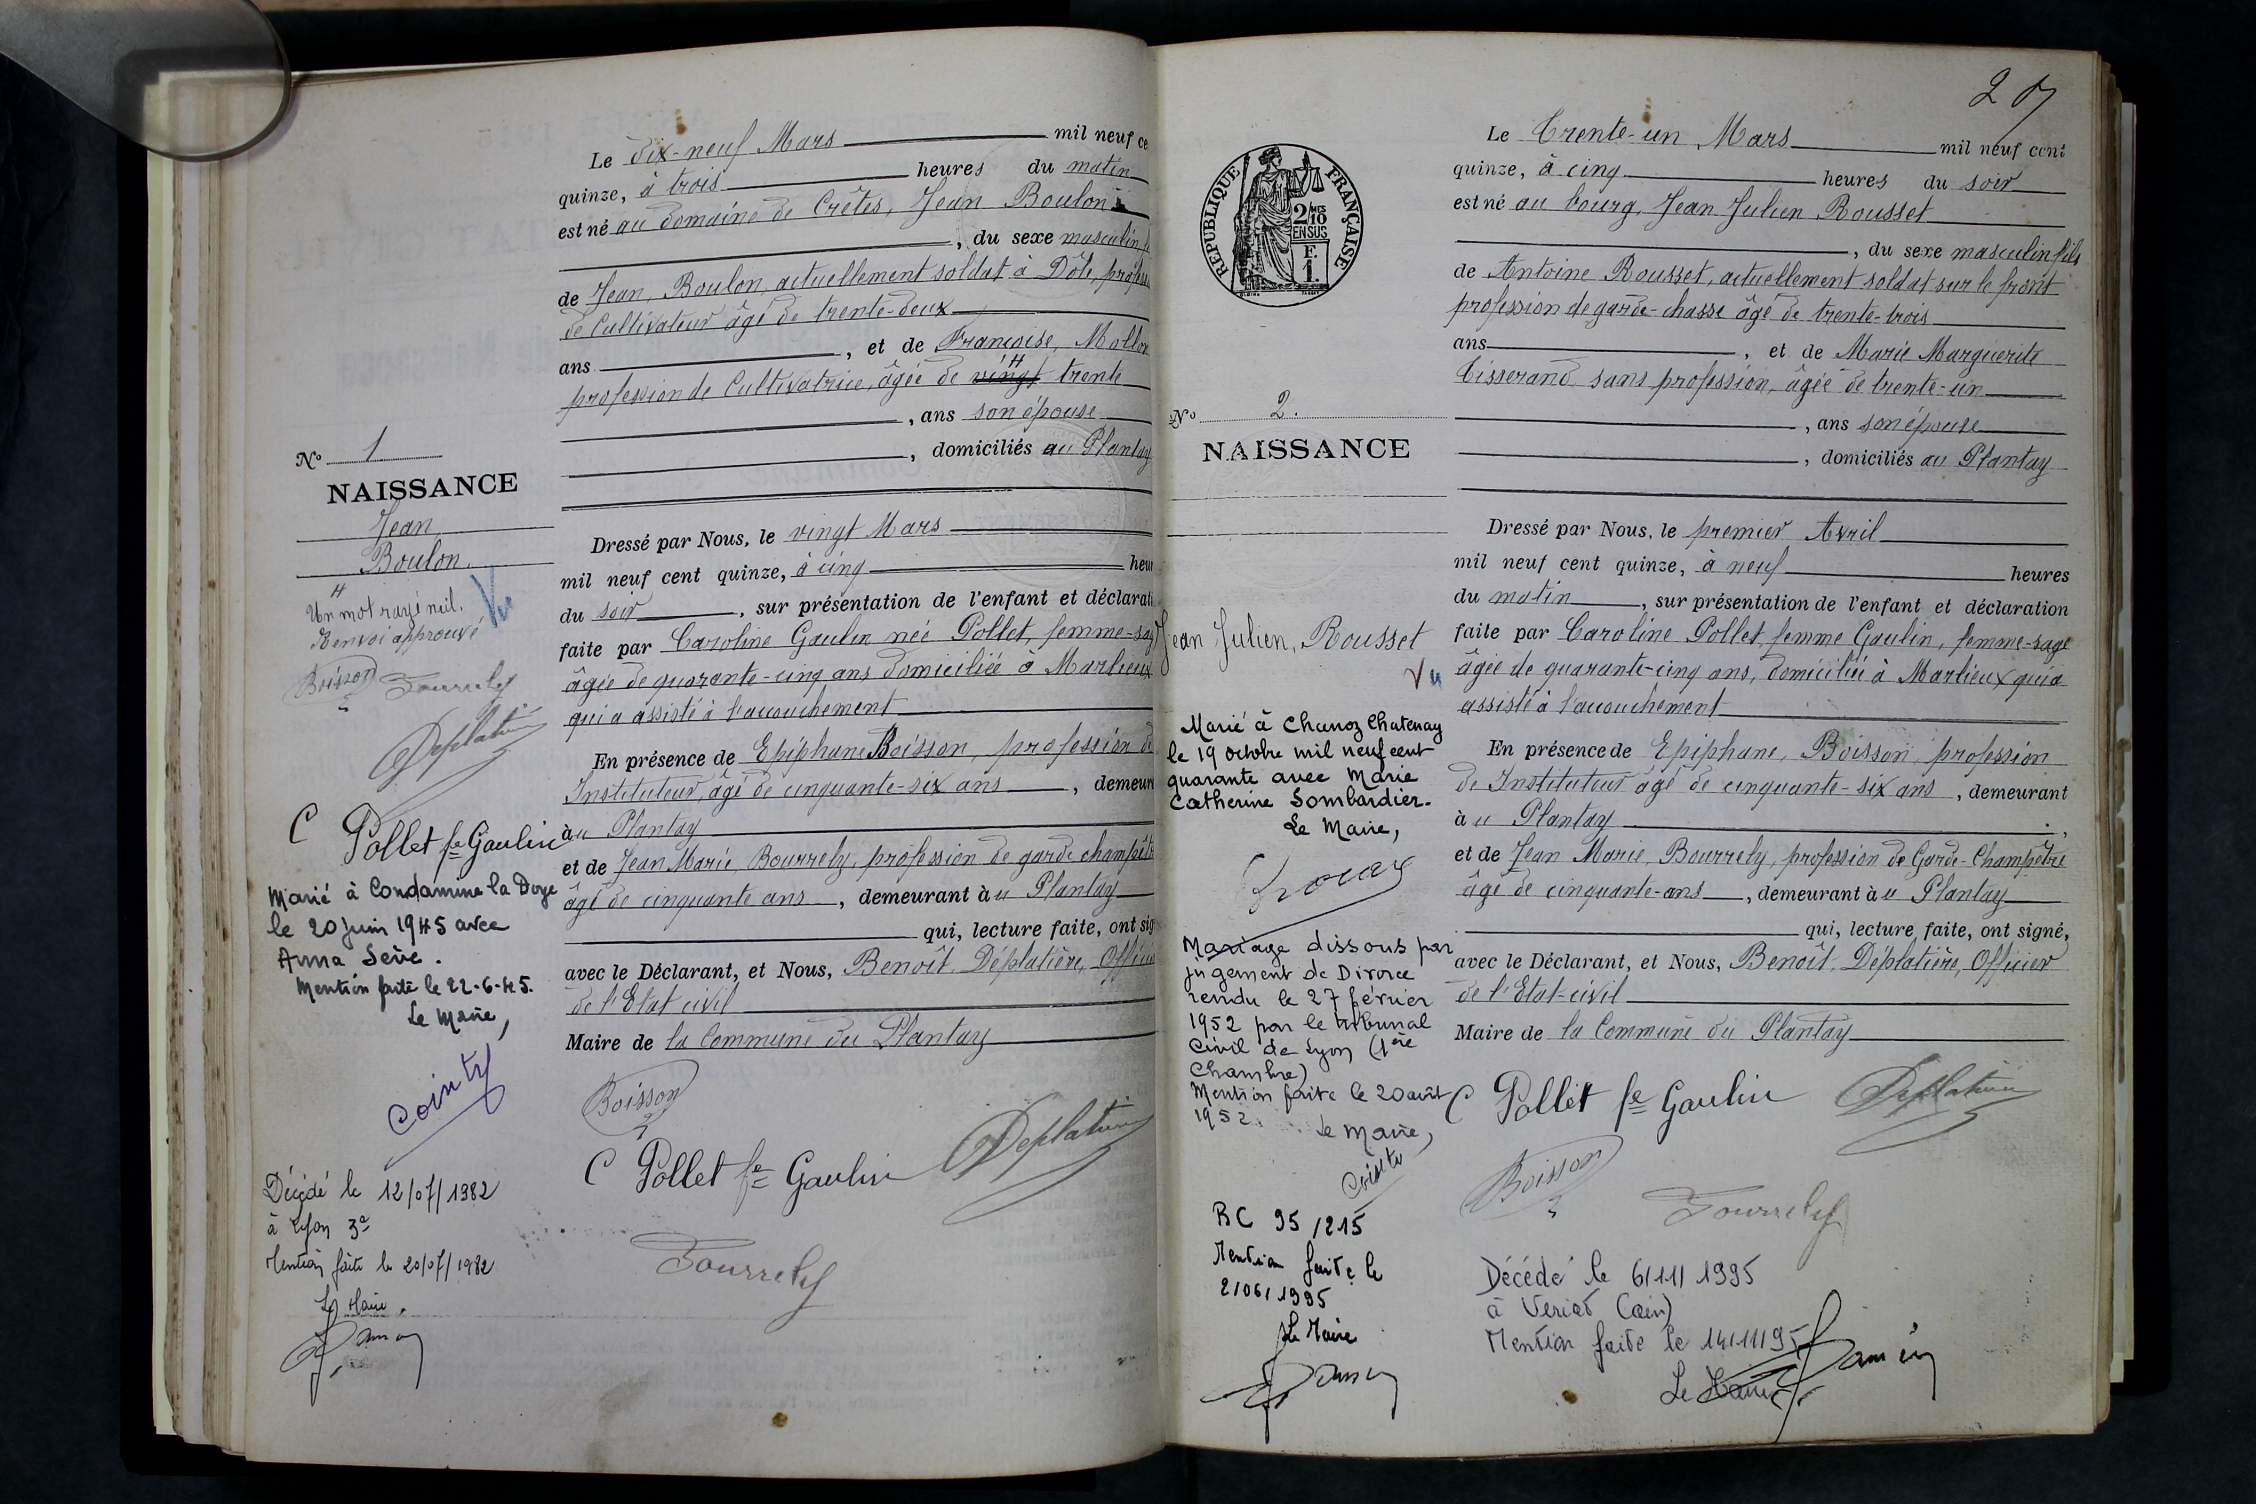 Le dix-neuf Mars mil neuf ce
quinze, à trois heures du matin
est né au domaine de Crêtes, Jean Boulon
, du sexe masculin
de Jean, Boulon, actuellement soldat à Dôle, profess
de Cultivateur âgé de trente-deux
ans , et de Françoise, Mollon
profession de Cultivatrice, âgée de vingt trente
, ans son épouse
, domiciliés au Plantay
No 1
NAISSANCE
Jean
Boulon
Un mot rayé nul.
Renvoi approuvé
Vu
Boisson Bourrely
Déplatière
C Pollet fe Gaulin
Marié à Condamine la Doye
le 20 juin 1945 avec
Anna Sève.
Mention faite le 22-6-45.
Le Maire,
Cointy
Décédé le 12/07/1982
à Lyon 3e
Mention faite le 20/07/1982
Le Maire.
Dressé par Nous, le vingt Mars
mil neuf cent quinze, à cinq heu
du soir , sur présentation de l'enfant et déclarati
faite par Caroline Gaulin née Pollet, femme-sag
âgée de quarante-cinq ans domiciliée à Marlieux
qui a assisté à l'accouchement
En présence de Epiphane Boisson, profession d
Instituteur, âgé de cinquante-six ans , demeur
àu Plantay
et de Jean Marie, Bourrely, profession de garde champêtr
âgé de cinquante ans , demeurant àu Plantay
qui, lecture faite, ont sig
avec le Déclarant, et Nous, Benoît, Déplatière, Officie
de l'Etat civil
Maire de la Commune du Plantay
Boisson
C Pollet fe Gaulin Déplatière
Bourrely
27
RÉPUBLIQUE FRANÇAISE
2/10 EN SUS
F. 1
Le Trente-un Mars mil neuf cent
quinze, à cinq heures du soir
est né au bourg, Jean Julien Rousset
, du sexe masculin fils
de Antoine Rousset, actuellement soldat sur le front
profession de garde-chasse âgé de trente-trois
ans , et de Marie Marguerite
Tisserand sans profession, âgée de trente-un
, ans son épouse
, domiciliés au Plantay
No 2.
NAISSANCE
Jean Julien, Rousset
Vu
Marié à Chanoz Chatenay
le 19 octobre mil neuf cent
quarante avec Marie
Catherine Sombardier.
Le Maire,
Mariage dissous par
jugement de Divorce
rendu le 27 février
1952 par le tribunal
Civil de Lyon (1ère
Chambre)
Mention faite le 20 août
1952. Le Maire,
Cointy
RC 95/215
Mention faite le
2/06/1995
Le Maire
Dressé par Nous, le premier Avril
mil neuf cent quinze, à neuf heures
du matin , sur présentation de l'enfant et déclaration
faite par Caroline Pollet, femme Gaulin, femme-sage
âgée de quarante-cinq ans, domiciliée à Marlieux qui a
assisté à l'accouchement
En présence de Epiphane, Boisson, profession
de Instituteur âgé de cinquante-six ans , demeurant
àu Plantay ,
et de Jean Marie, Bourrely, profession de Garde-Champêtre
âgé de cinquante-ans , demeurant àu Plantay
qui, lecture faite, ont signé,
avec le Déclarant, et Nous, Benoît, Déplatière, Officier
de l'Etat-civil
Maire de la Commune du Plantay
C Pollet fe Gaulin Déplatière
Boisson
Bourrely
Décédé le 6/11/1995
à Veriat (ain)
Mention faite le 14/11/95
Le Maire